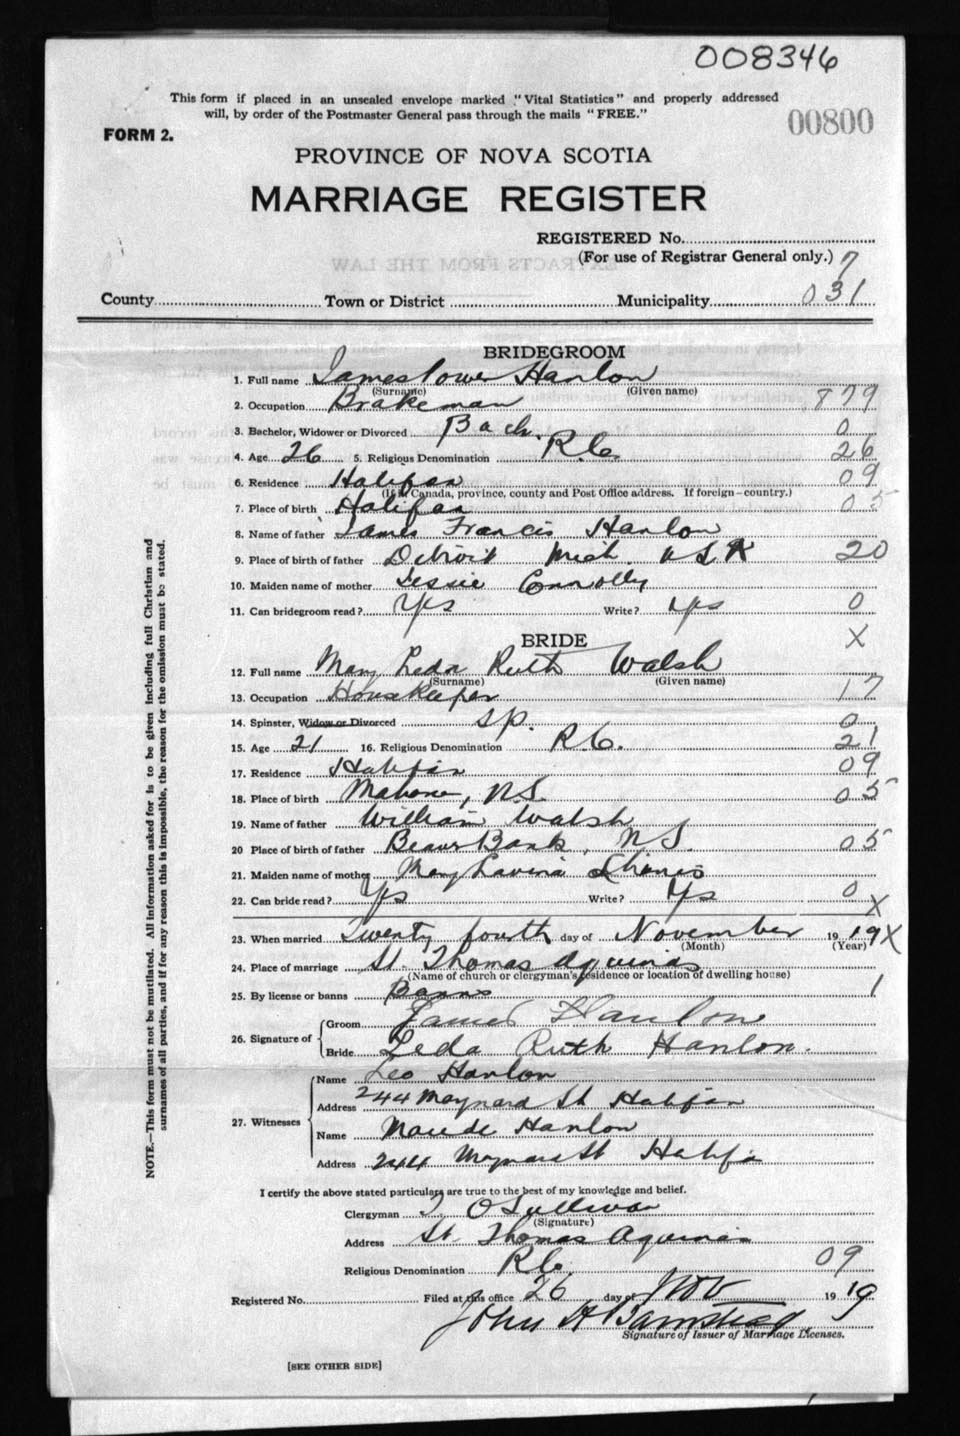 008346
This form if placed in an unsealed envelope marked "Vital Statistics" and properly addressed
will, by order of the Postmaster General pass through the mails "FREE."
00800
FORM 2.
PROVINCE OF NOVA SCOTIA
MARRIAGE REGISTER
REGISTERED No.
(For use of Registrar General only.) 7
County Town or District Municipality 031
BRIDEGROOM
1. Full name James Power Hanlon
(Surname) (Given name)
2. Occupation Brakeman 879
3. Bachelor, Widower or Divorced Bach. 0
4. Age 26 5. Religious Denomination R.C. 26
6. Residence Halifax 09
(If in Canada, province, county and Post Office address. If foreign—country.)
7. Place of birth Halifax 05
8. Name of father James Francis Hanlon
9. Place of birth of father Detroit Mich. U S A 20
10. Maiden name of mother Jessie Connolly
11. Can bridegroom read? Yes Write? Yes 0
BRIDE X
12. Full name Mary Leda Ruth Walsh
(Surname) (Given name)
13. Occupation Housekeeper 17
14. Spinster, Widow or Divorced Sp. 0
15. Age 21 16. Religious Denomination R.C. 21
17. Residence Halifax 09
18. Place of birth Mahone, N.S. 05
19. Name of father William Walsh
20 Place of birth of father Beaver Bank, N S. 05
21. Maiden name of mother Mary Lavinia
22. Can bride read? Yes Write? Yes 0
X
23. When married Twenty fourth day of November 19 19 X
(Month) (Year)
24. Place of marriage St. Thomas Aquinas
(Name of church or clergyman's residence or location of dwelling house)
25. By license or banns Banns 1
26. Signature of Groom James Hanlon
Bride Leda Ruth Hanlon.
27. Witnesses Name Leo Hanlon
Address 244 Maynard St Halifax
Name Maude Hanlon
Address 244 Maynard St Halifax
I certify the above stated particulars are true to the best of my knowledge and belief.
Clergyman O'Sullivan
(Signature)
Address St. Thomas Aquinas
Religious Denomination R.C. 09
Registered No. Filed at this office 26 day of Nov 19 19
John A Barnstead
Signature of Issuer of Marriage Licenses.
[SEE OTHER SIDE]
NOTE.—This form must not be mutilated. All information asked for is to be given including full Christian and
surnames of all parties, and if for any reason this is impossible, the reason for the omission must be stated.